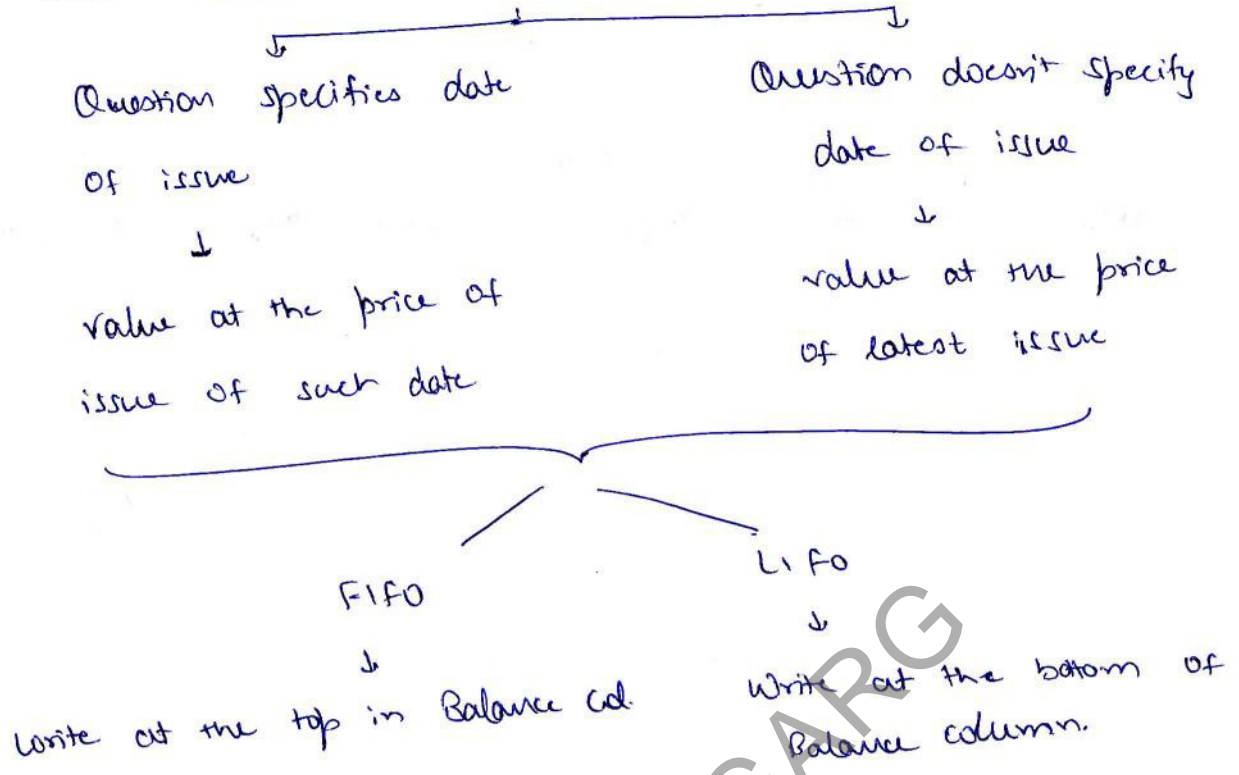 Question specifies date
of issue
value at the price of
issue of such date
Question doesn't specify
date of issue
value at the price
of latest issue
FIFO
write at the top in Balance col.
LIFO
Write at the bottom of
Balance column.
GARG